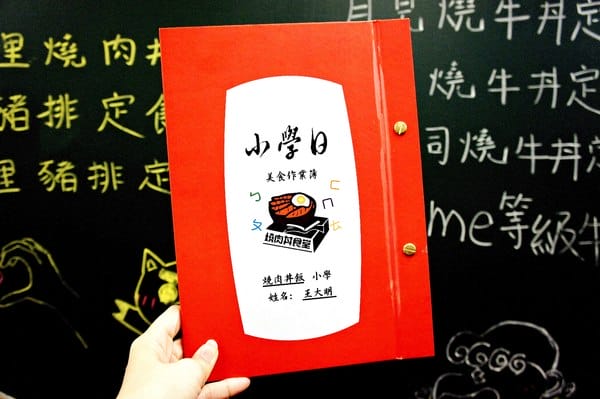 里燒肉丼
豬排定食
里豬排定
小學日
美食作業簿
ㄅ ㄈ
ㄆ ㄇ
燒肉丼食堂
燒肉丼飯 小學
姓名: 王大明
月見燒牛丼定
燒牛丼定
司燒牛丼定
me等級牛